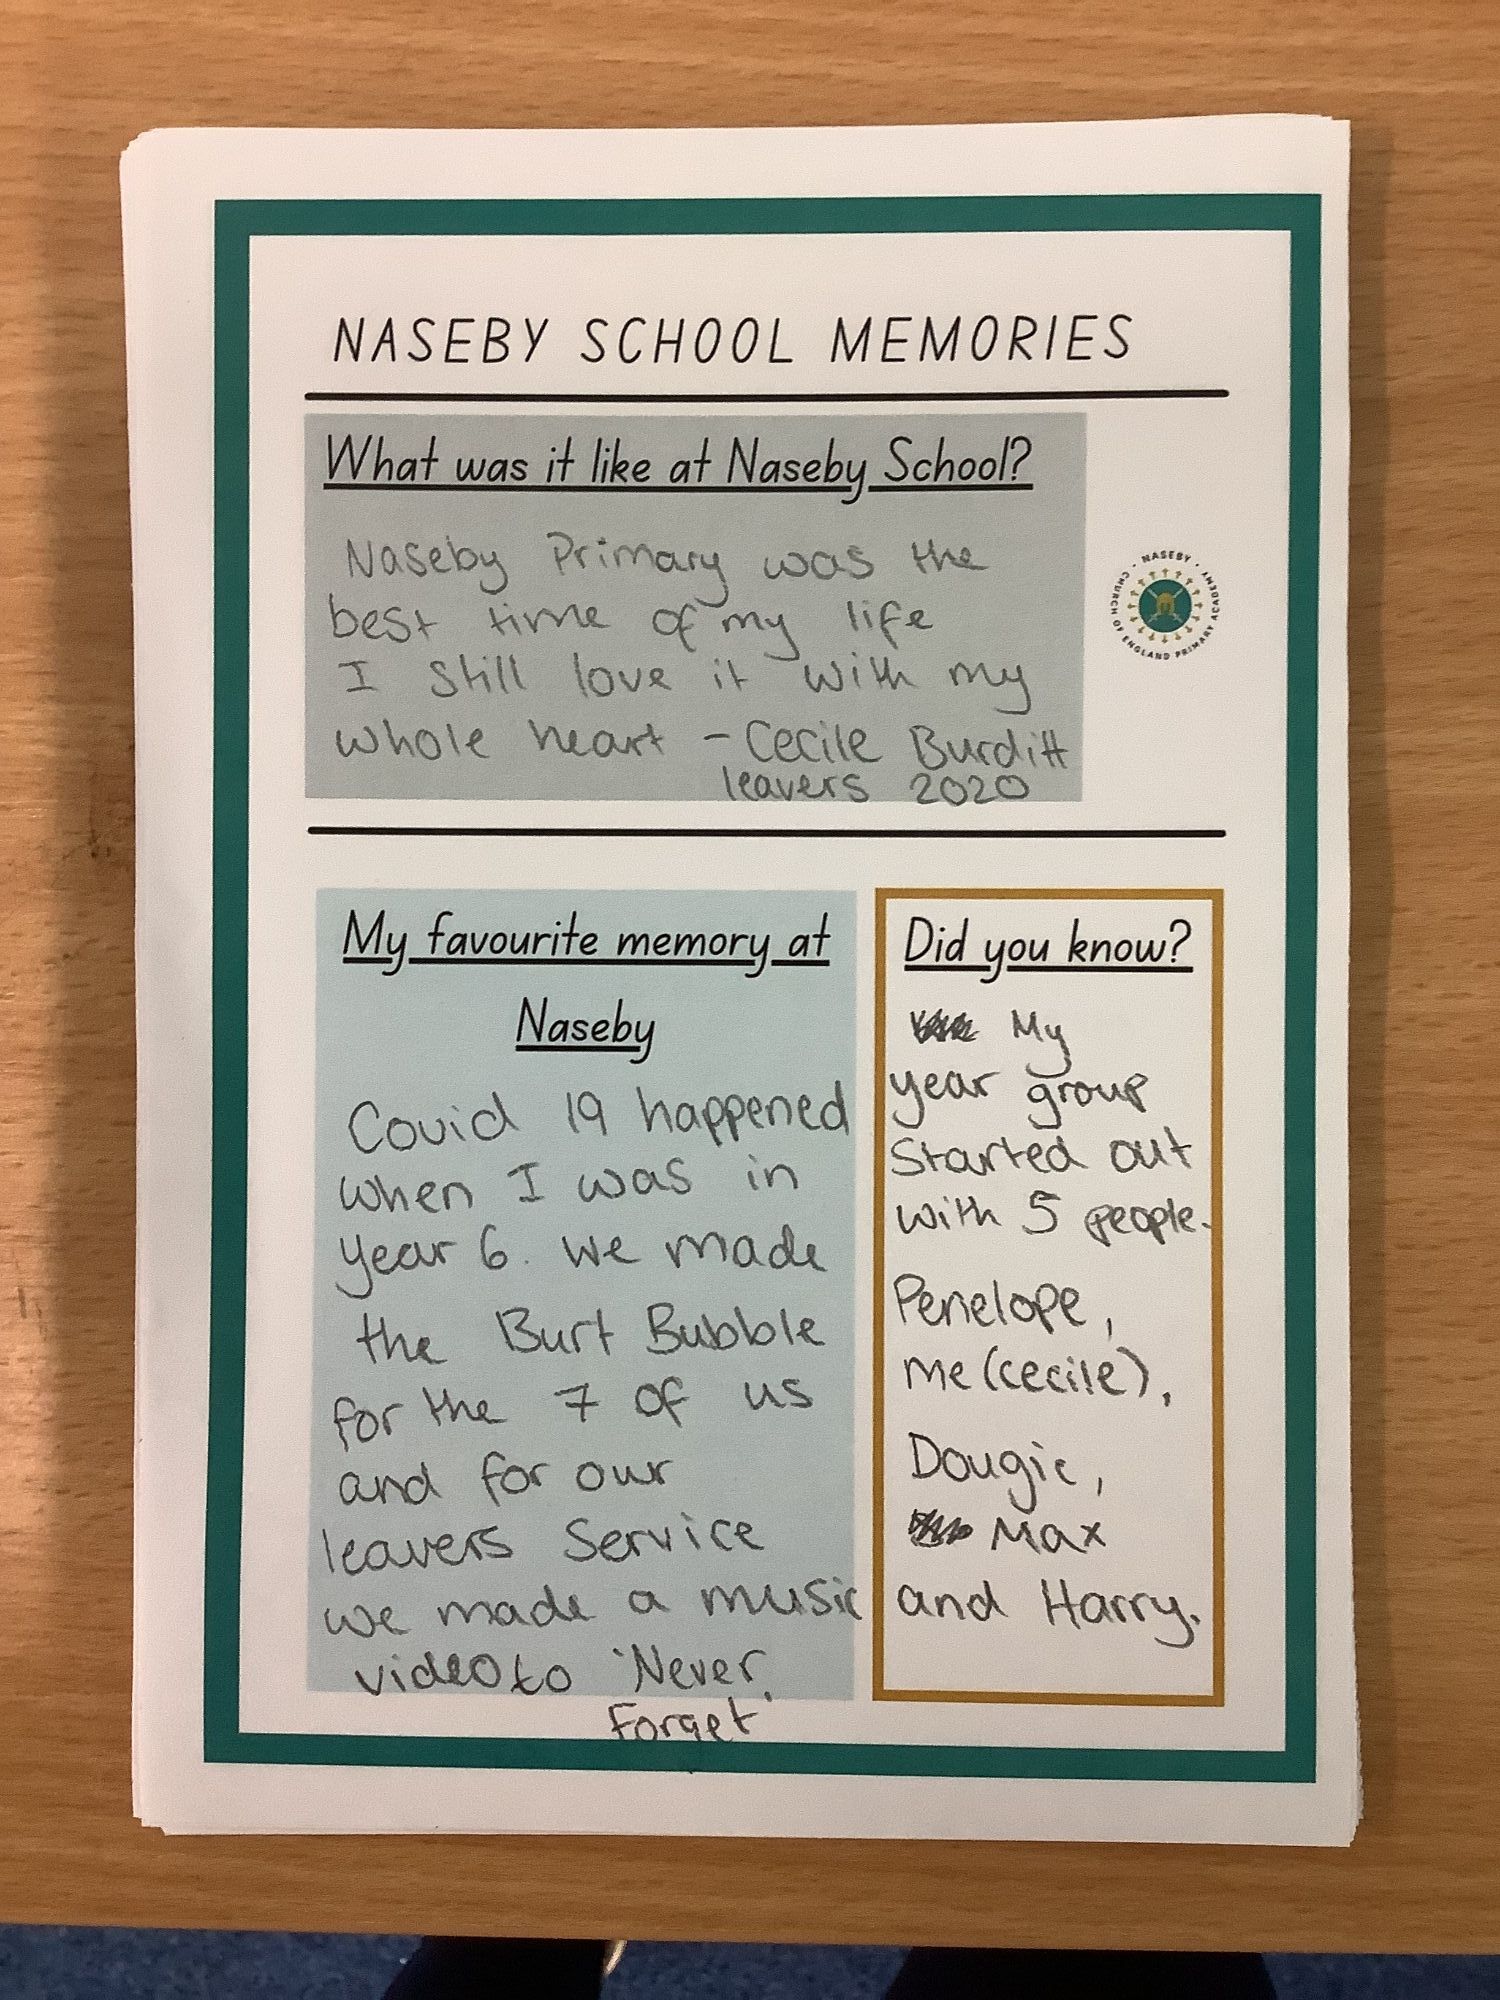 NASEBY SCHOOL MEMORIES
What was it like at Naseby School?
Naseby Primary was the
best time of my life
I still love it with my
whole heart - Cecile Burditt
leavers 2020
NASEBY
CHURCH OF ENGLAND PRIMARY ACADEMY
My favourite memory at
Naseby
Covid 19 happened
when I was in
year 6. we made
the Burt Bubble
for the 7 of us
and for our
leavers Service
we made a music
video to 'Never
Forget'
Did you know?
My
year group
Started out
with 5 people.
Penelope,
me (cecile),
Dougie,
Max
and Harry.